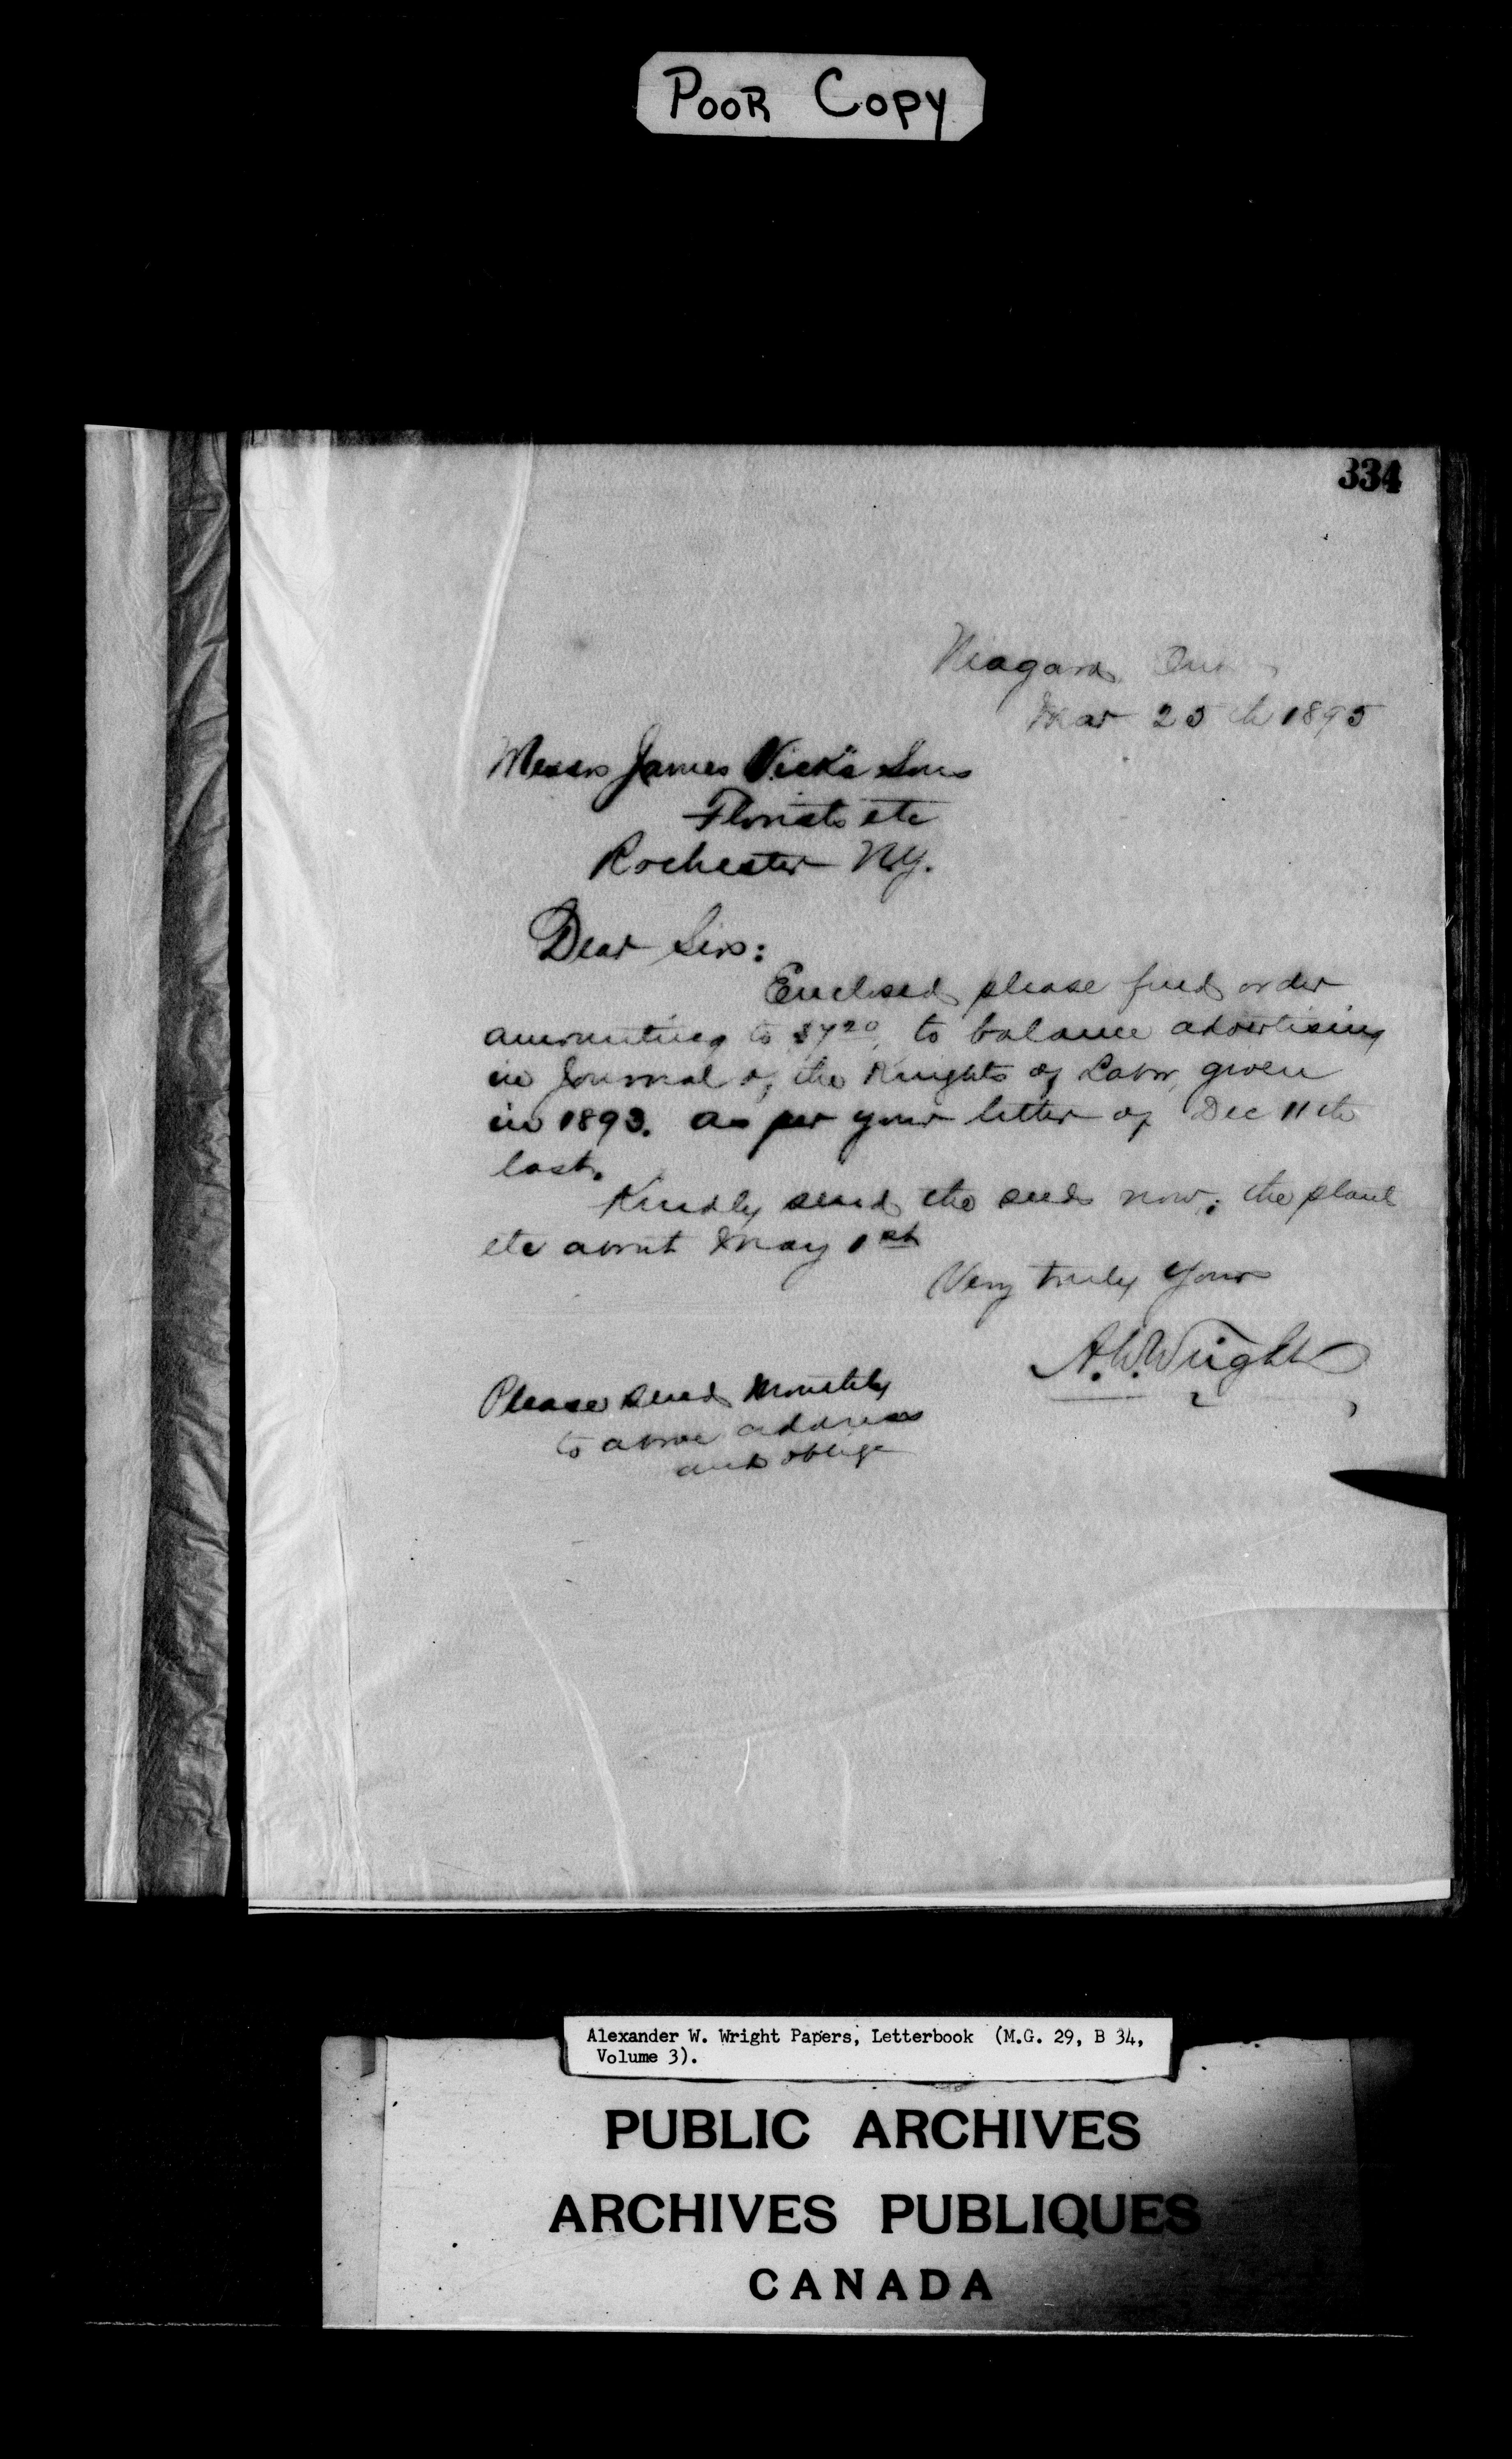 POOR COPY
334
Niagara Ont
Mar 25th 1895
Messrs James Vick's Sons
Florists etc
Rochester N.Y.
Dear Sirs:
Enclosed please find order
amounting to $7 20, to balance advertising
in Journal of the Knights of Labor, given
in 1893. as per your letter of Dec 11th
last.
Kindly send the seeds now; the plants
etc about May 1st
Very truly yours
A.W. Wright
Please send Monthly
to above address
and oblige
Alexander W. Wright Papers, Letterbook (M.G. 29, B 34,
Volume 3).
PUBLIC ARCHIVES
ARCHIVES PUBLIQUES
CANADA